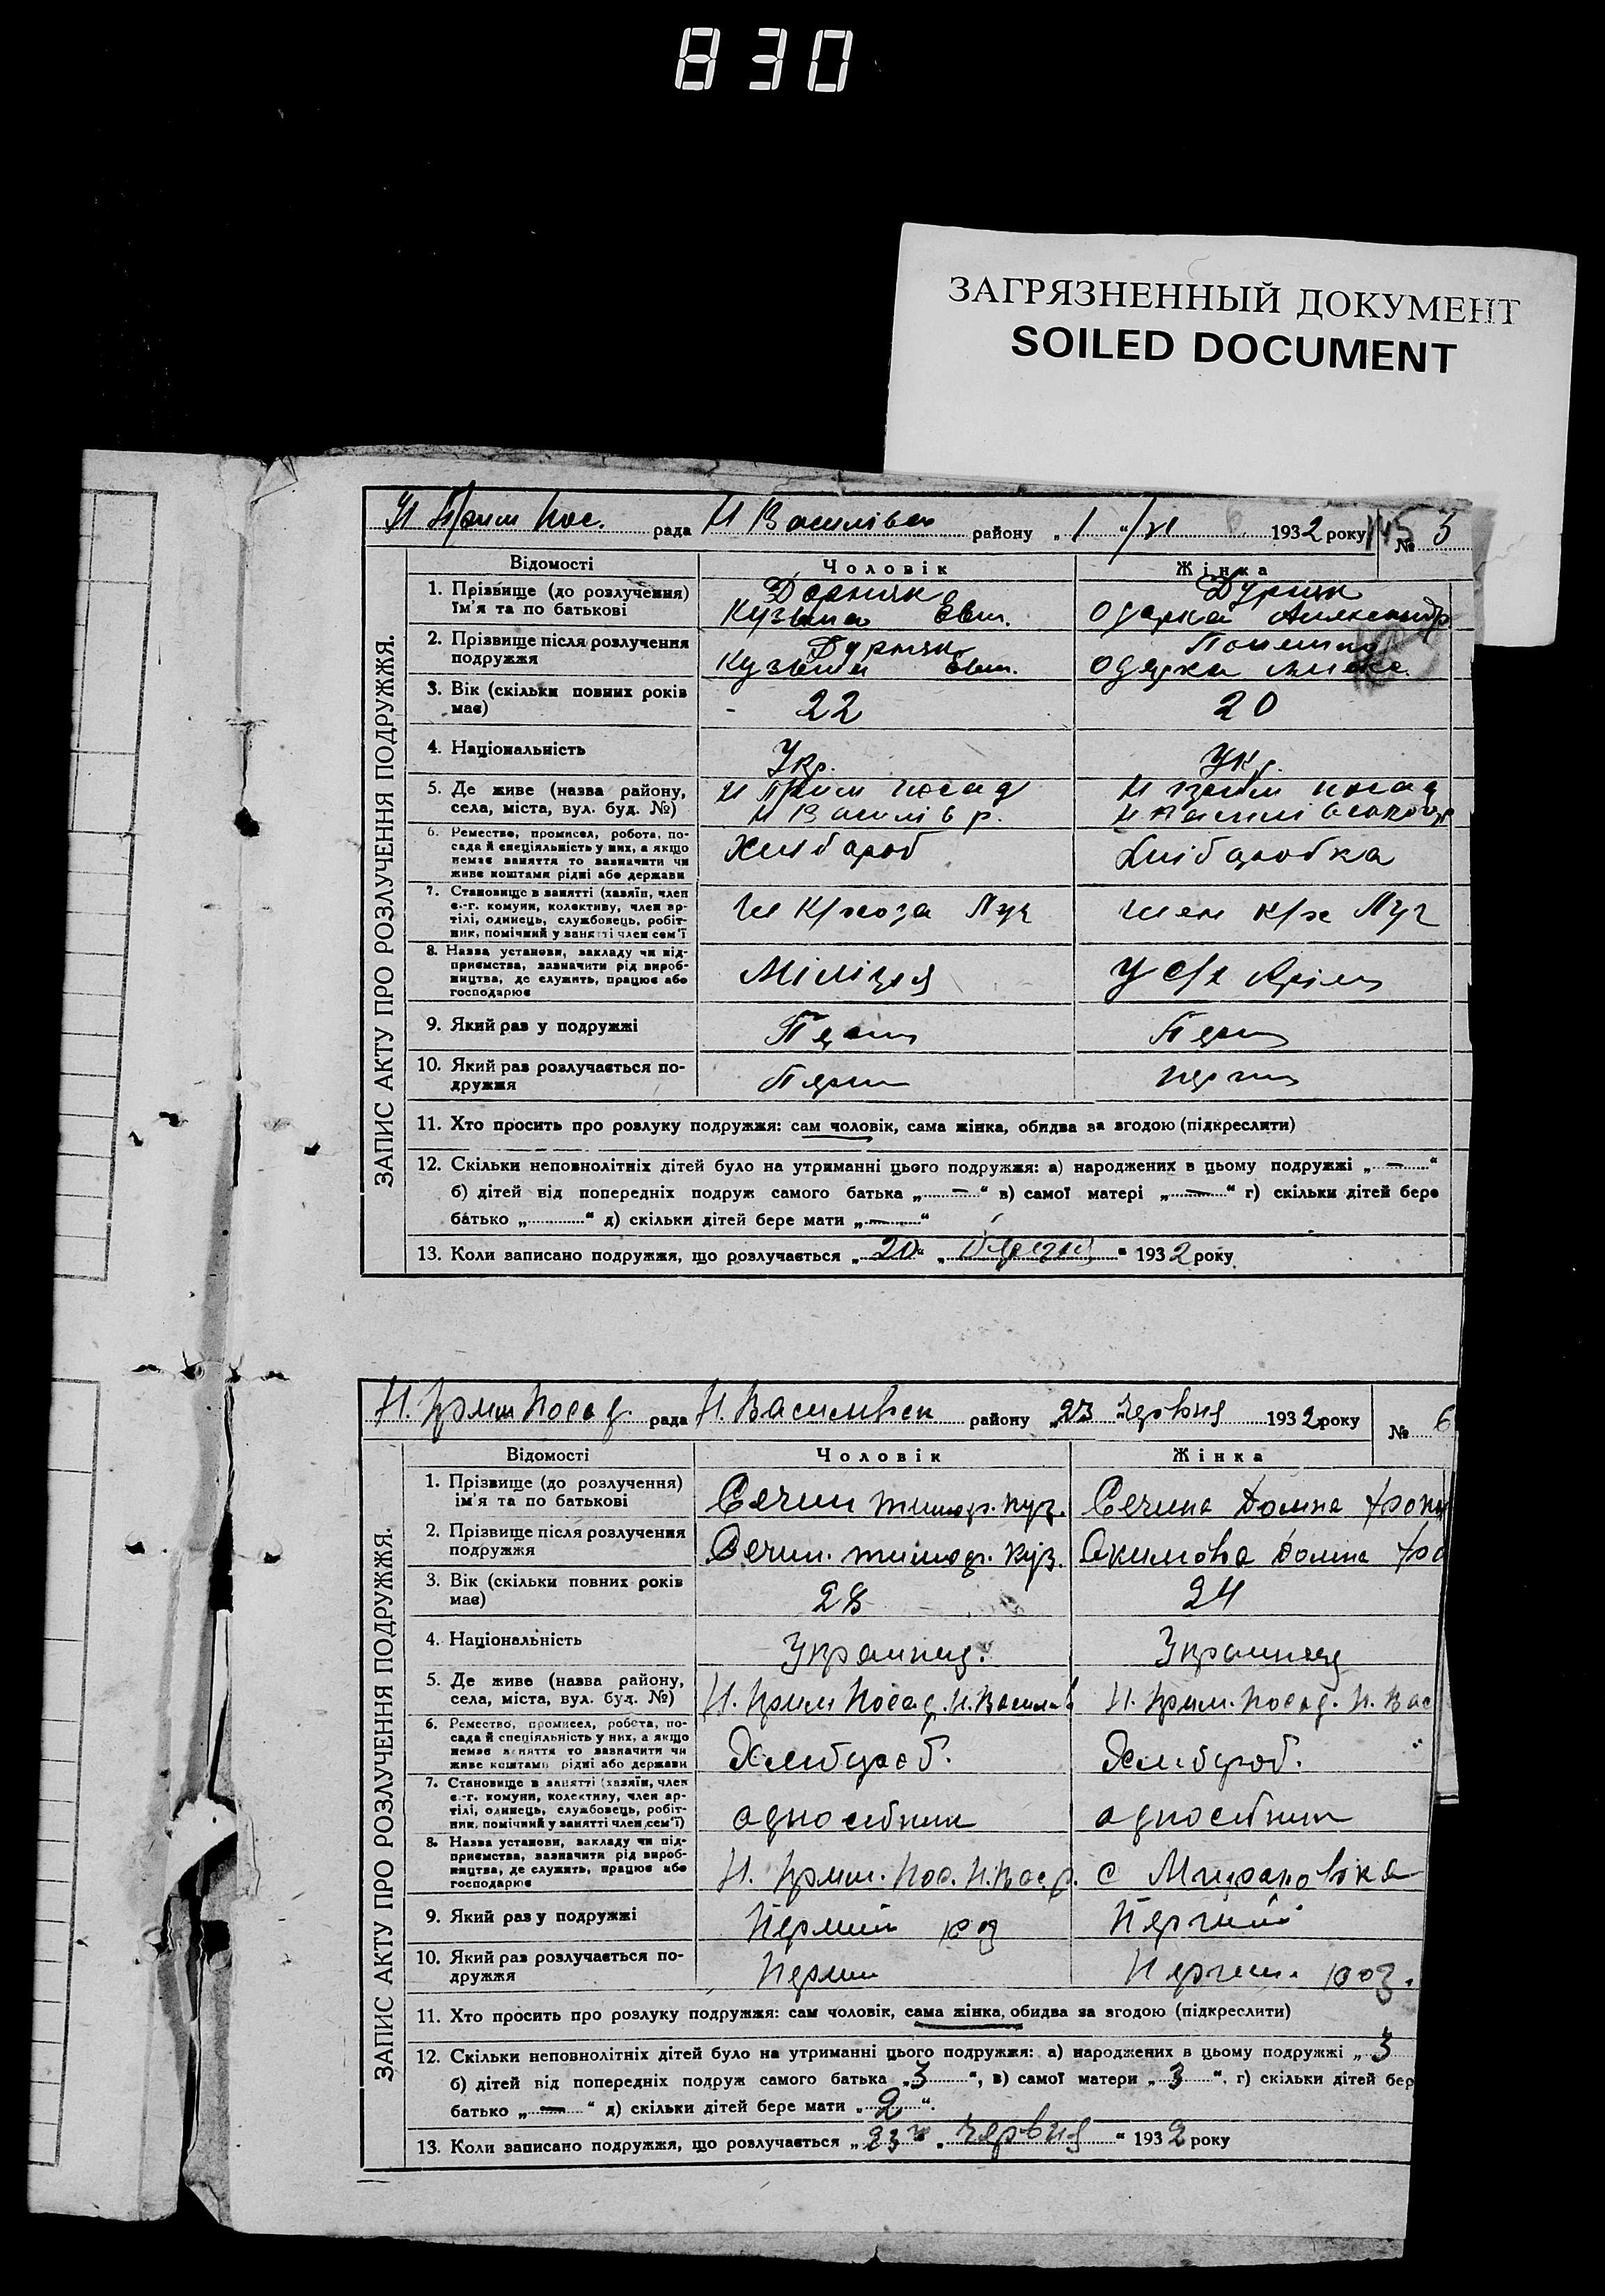 830
ЗАГРЯЗНЕННЫЙ ДОКУМЕНТ
SOILED DOCUMENT
ЗАПИС АКТУ ПРО РОЗЛУЧЕННЯ ПОДРУЖЖЯ.
рада Н Василівсь району „ 1 “ 1932 року № 5
Відомості Чоловік Жінка
1. Прізвище (до розлучення) Дурняк
ім'я та по батькові Кузьма Евт. Одарка Александр
2. Прізвище після розлучення Дурняк
подружжя Кузьма Евт. Одарка
3. Вік (скільки повних років 22 20
має)
4. Національність Укр. Укр.
5. Де живе (назва району, Н посад Н посад
села, міста, вул. буд. №) Н Василів р.
6. Ремество, промисел, робота, по-
сада й спеціяльність у них, а якщо Хлібороб Хліборобка
немає заняття то зазначити чи
живе коштами рідні або держави
7. Становище в занятті (хазяїн, член
с.-г. комуни, колективу, член ар-
тілі, одинець, службовець, робіт- Чл К/хоза Луч член к/х Луч
ник, помічний у занятті член сем'ї
8. Назва установи, закладу чи під-
приємства, зазначити рід вироб- Міліція
ництва, де служить, працює або
господарює
9. Який раз у подружжі Перш Перш
10. Який раз розлучається по- Перш перш
дружжя
11. Хто просить про розлуку подружжя: сам чоловік, сама жінка, обидва за згодою (підкреслити)
12. Скільки неповнолітніх дітей було на утриманні цього подружжя: а) народжених в цьому подружжі „ — “
б) дітей від попередніх подруж самого батька „ — “ в) самої матері „ — “ г) скільки дітей бере
батько „ “ д) скільки дітей бере мати „ — “
13. Коли записано подружжя, що розлучається „ 20 “ „ “ 1932 року
ЗАПИС АКТУ ПРО РОЗЛУЧЕННЯ ПОДРУЖЖЯ.
Н. Посад. рада Н. Василівськ району „23 червня 1932 року № 6
Відомості Чоловік Жінка
1. Прізвище (до розлучення) Сечин тимоф. куз. Сечина Домна
ім'я та по батькові
2. Прізвище після розлучення Сечин. тимоф. Куз. Акимова Домна
подружжя
3. Вік (скільки повних років 28 24
має)
4. Національність Украинец. Украинец
5. Де живе (назва району,
села, міста, вул. буд. №) Н. Посад. Н. Василів Н. Посад. Н. Вас
6. Ремество, промисел, робота, по-
сада й спеціяльність у них, а якщо
немає заняття то зазначити чи Хлибороб. Хлибороб.
живе коштами рідні або держави
7. Становище в занятті (хазяїн, член
с.-г. комуни, колективу, член ар-
тілі, одинець, службовець, робіт- односибник односибник
ник, помічний у занятті член сем'ї)
8. Назва установи, закладу чи під-
приємства, зазначити рід вироб-
ництва, де служить, працює або Н. Пос. Н. Вас. р. с
господарює
9. Який раз у подружжі Перший раз Перчий
10. Який раз розлучається по- Перши Перчи. раз.
дружжя
11. Хто просить про розлуку подружжя: сам чоловік, сама жінка, обидва за згодою (підкреслити)
12. Скільки неповнолітніх дітей було на утриманні цього подружжя: а) народжених в цьому подружжі „ 3
б) дітей від попередніх подруж самого батька „ 3 “, в) самої матери „ 3 “. г) скільки дітей бер
батько „ — “ д) скільки дітей бере мати „ 2 “.
13. Коли записано подружжя, що розлучається „ 23 “ „ червня “ 1932 року